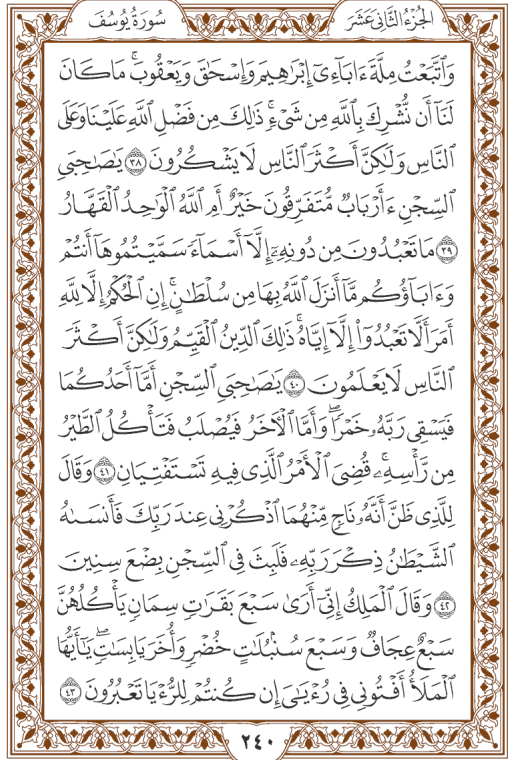 الجزء الثاني عشر
سورة يوسف
وَاتَّبَعْتُ مِلَّةَ ءَابَآءِىٓ إِبْرَٰهِيمَ وَإِسْحَٰقَ وَيَعْقُوبَ ۚ مَا كَانَ
لَنَآ أَن نُّشْرِكَ بِاللَّهِ مِن شَىْءٍ ۚ ذَٰلِكَ مِن فَضْلِ اللَّهِ عَلَيْنَا وَعَلَى
النَّاسِ وَلَٰكِنَّ أَكْثَرَ النَّاسِ لَا يَشْكُرُونَ ٣٨ يَٰصَٰحِبَىِ
السِّجْنِ ءَأَرْبَابٌ مُّتَفَرِّقُونَ خَيْرٌ أَمِ اللَّهُ الْوَٰحِدُ الْقَهَّارُ
٣٩ مَا تَعْبُدُونَ مِن دُونِهِۦٓ إِلَّآ أَسْمَآءً سَمَّيْتُمُوهَآ أَنتُمْ
وَءَابَآؤُكُم مَّآ أَنزَلَ اللَّهُ بِهَا مِن سُلْطَٰنٍ ۚ إِنِ الْحُكْمُ إِلَّا لِلَّهِ
أَمَرَ أَلَّا تَعْبُدُوٓا۟ إِلَّآ إِيَّاهُ ۚ ذَٰلِكَ الدِّينُ الْقَيِّمُ وَلَٰكِنَّ أَكْثَرَ
النَّاسِ لَا يَعْلَمُونَ ٤٠ يَٰصَٰحِبَىِ السِّجْنِ أَمَّآ أَحَدُكُمَا
فَيَسْقِى رَبَّهُۥ خَمْرًا ۖ وَأَمَّا الْءَاخَرُ فَيُصْلَبُ فَتَأْكُلُ الطَّيْرُ
مِن رَّأْسِهِۦ ۚ قُضِىَ الْأَمْرُ الَّذِى فِيهِ تَسْتَفْتِيَانِ ٤١ وَقَالَ
لِلَّذِى ظَنَّ أَنَّهُۥ نَاجٍ مِّنْهُمَا اذْكُرْنِى عِندَ رَبِّكَ فَأَنسَىٰهُ
الشَّيْطَٰنُ ذِكْرَ رَبِّهِۦ فَلَبِثَ فِى السِّجْنِ بِضْعَ سِنِينَ
٤٢ وَقَالَ الْمَلِكُ إِنِّىٓ أَرَىٰ سَبْعَ بَقَرَٰتٍ سِمَانٍ يَأْكُلُهُنَّ
سَبْعٌ عِجَافٌ وَسَبْعَ سُنۢبُلَٰتٍ خُضْرٍ وَأُخَرَ يَابِسَٰتٍ ۖ يَٰٓأَيُّهَا
الْمَلَأُ أَفْتُونِى فِى رُءْيَٰىَ إِن كُنتُمْ لِلرُّءْيَا تَعْبُرُونَ ٤٣
٢٤٠